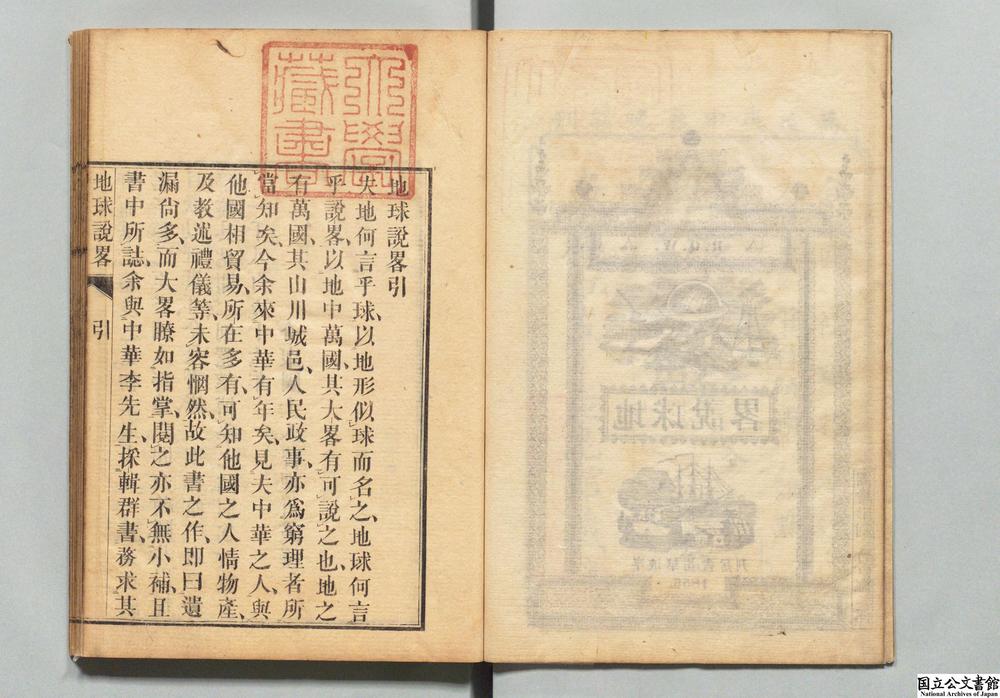 大學
藏書
地球說畧引
夫地何言乎球、以地形似球而名之、地球何言
乎說畧、以地中萬國、其大畧有可說之也、地之
有萬國、其山川城邑、人民政事、亦爲窮理者所
當知矣、今余來中華有年矣、見夫中華之人、與
他國相貿易、所在多有、可知他國之人情物產、
及教述禮儀等、未容惘然、故此書之作、卽曰遺
漏尙多、而大畧瞭如指掌、閱之亦不無小補、且
書中所誌、余與中華李先生、採輯群書、務求其
地球說畧 引
地球說畧
1856
国立公文書館
National Archives of Japan